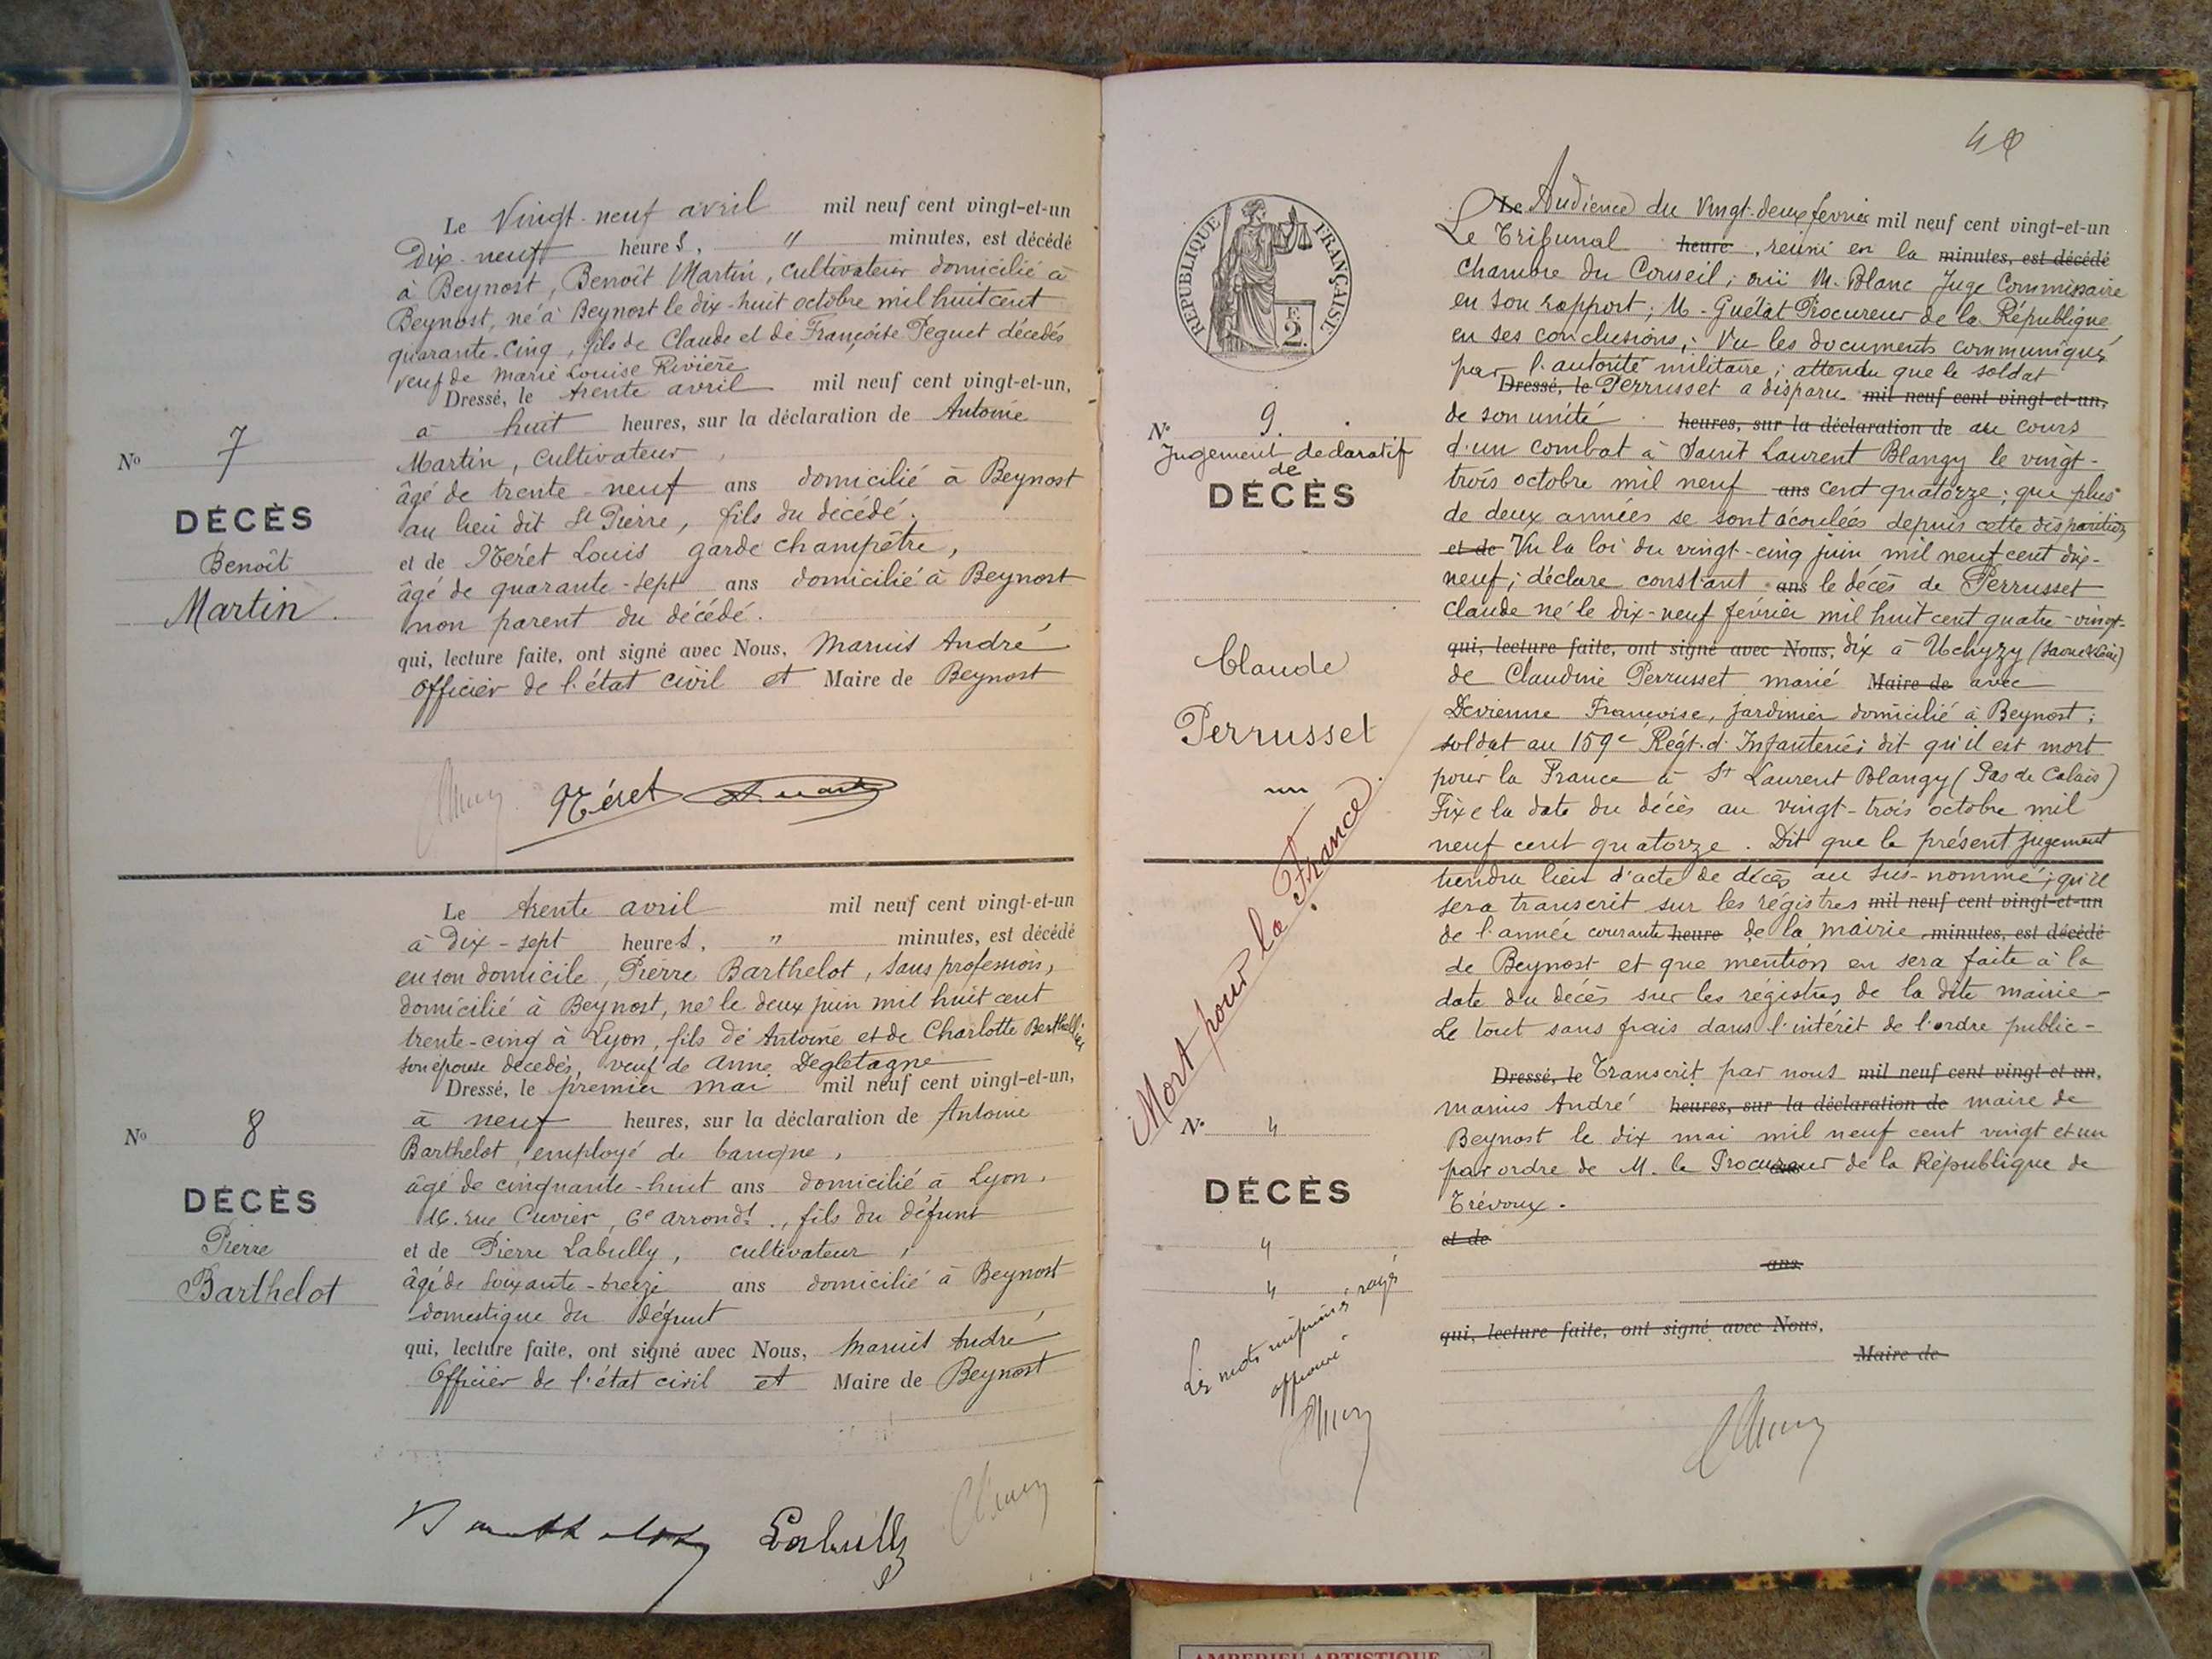 Le Vingt-neuf avril mil neuf cent vingt-et-un
Dix-neuf heures, " minutes, est décédé
à Beynost, Benoît Martin, cultivateur domicilié à
Beynost, né à Beynost le dix-huit octobre mil huit cent
quarante-cinq, fils de Claude et de Françoise Peguet décédés
veuf de Marie Louise Rivière
Dressé, le trente avril mil neuf cent vingt-et-un,
à huit heures, sur la déclaration de Antoine
Martin, cultivateur,
âgé de trente-neuf ans domicilié à Beynost
au lieu dit St Pierre, fils du décédé.
et de Néret Louis garde champêtre,
âgé de quarante-sept ans domicilié à Beynost
non parent du décédé.
qui, lecture faite, ont signé avec Nous, Marius André
Officier de l'état civil et Maire de Beynost
No 7
DÉCÈS
Benoît
Martin
Néret
Le trente avril mil neuf cent vingt-et-un
à Dix-sept heures, " minutes, est décédé
en son domicile, Pierre Barthelot, sans profession,
domicilié à Beynost, né le deux juin mil huit cent
trente-cinq à Lyon, fils de Antoine et de Charlotte
son épouse décédés, veuf de Anne Degletagne
Dressé, le premier mai mil neuf cent vingt-et-un,
à neuf heures, sur la déclaration de Antoine
Barthelot, employé de banque,
âgé de cinquante-huit ans domicilié à Lyon,
16 rue Cuvier, 6e arrondt., fils du défunt
et de Pierre Labully, cultivateur,
âgé de soixante-treize ans domicilié à Beynost
domestique du défunt
qui, lecture faite, ont signé avec Nous, Marius André
Officier de l'état civil et Maire de Beynost
No 8
DÉCÈS
Pierre
Barthelot
Barthelot Labully
RÉPUBLIQUE FRANÇAISE
E
2.
No 9.
Jugement declaratif
de
DÉCÈS
Claude
Perrusset
Mort pour la France
No "
DÉCÈS
"
"
Les mots imprimés rayés
approuvé
Le Audience du Vingt-deux fevrier mil neuf cent vingt-et-un
Le Tribunal heure, réuni en la minutes, est décédé
Chambre du Conseil; ouï M. Blanc Juge Commissaire
en son rapport; M. Guélat Procureur de la République
en ses conclusions; Vu les documents communiqués
par l'autorité militaire; attendu que le soldat
Dressé, le Perrusset a disparu mil neuf cent vingt-et-un,
de son unité heures, sur la déclaration de au cours
d'un combat à Saint Laurent Blangy le vingt-
trois octobre mil neuf ans cent quatorze; que plus
de deux années se sont écoulées depuis cette disparition
et de Vu la loi du vingt-cinq juin mil neuf cent dix-
neuf; déclare constant ans le décès de Perrusset
Claude né le dix-neuf février mil huit cent quatre-vingt-
qui, lecture faite, ont signé avec Nous, dix à Uchyzy (Saone & Loire)
de Claudine Perrusset marié Maire de avec
Devienne Françoise, jardinier domicilié à Beynost;
soldat au 159e Régt. d'Infanterie; dit qu'il est mort
pour la France à St Laurent Blangy (Pas de Calais)
Fixe la date du décès au vingt-trois octobre mil
neuf cent quatorze. Dit que le présent jugement
tiendra lieu d'acte de décès au sus-nommé; qu'il
sera transcrit sur les régistres mil neuf cent vingt-et-un
de l'année courante heure de la mairie minutes, est décédé
de Beynost et que mention en sera faite à la
date du décès sur les régistres de la dite mairie-
Le tout sans frais dans l'intérêt de l'ordre public-
Dressé, le Transcrit par nous mil neuf cent vingt et un,
Marius André heures, sur la déclaration de maire de
Beynost le dix mai mil neuf cent vingt et un
par ordre de M. le Procureur de la République de
Trévoux.
et de
ans
qui, lecture faite, ont signé avec Nous,
Maire de
AMBERIEU ARTISTIQUE